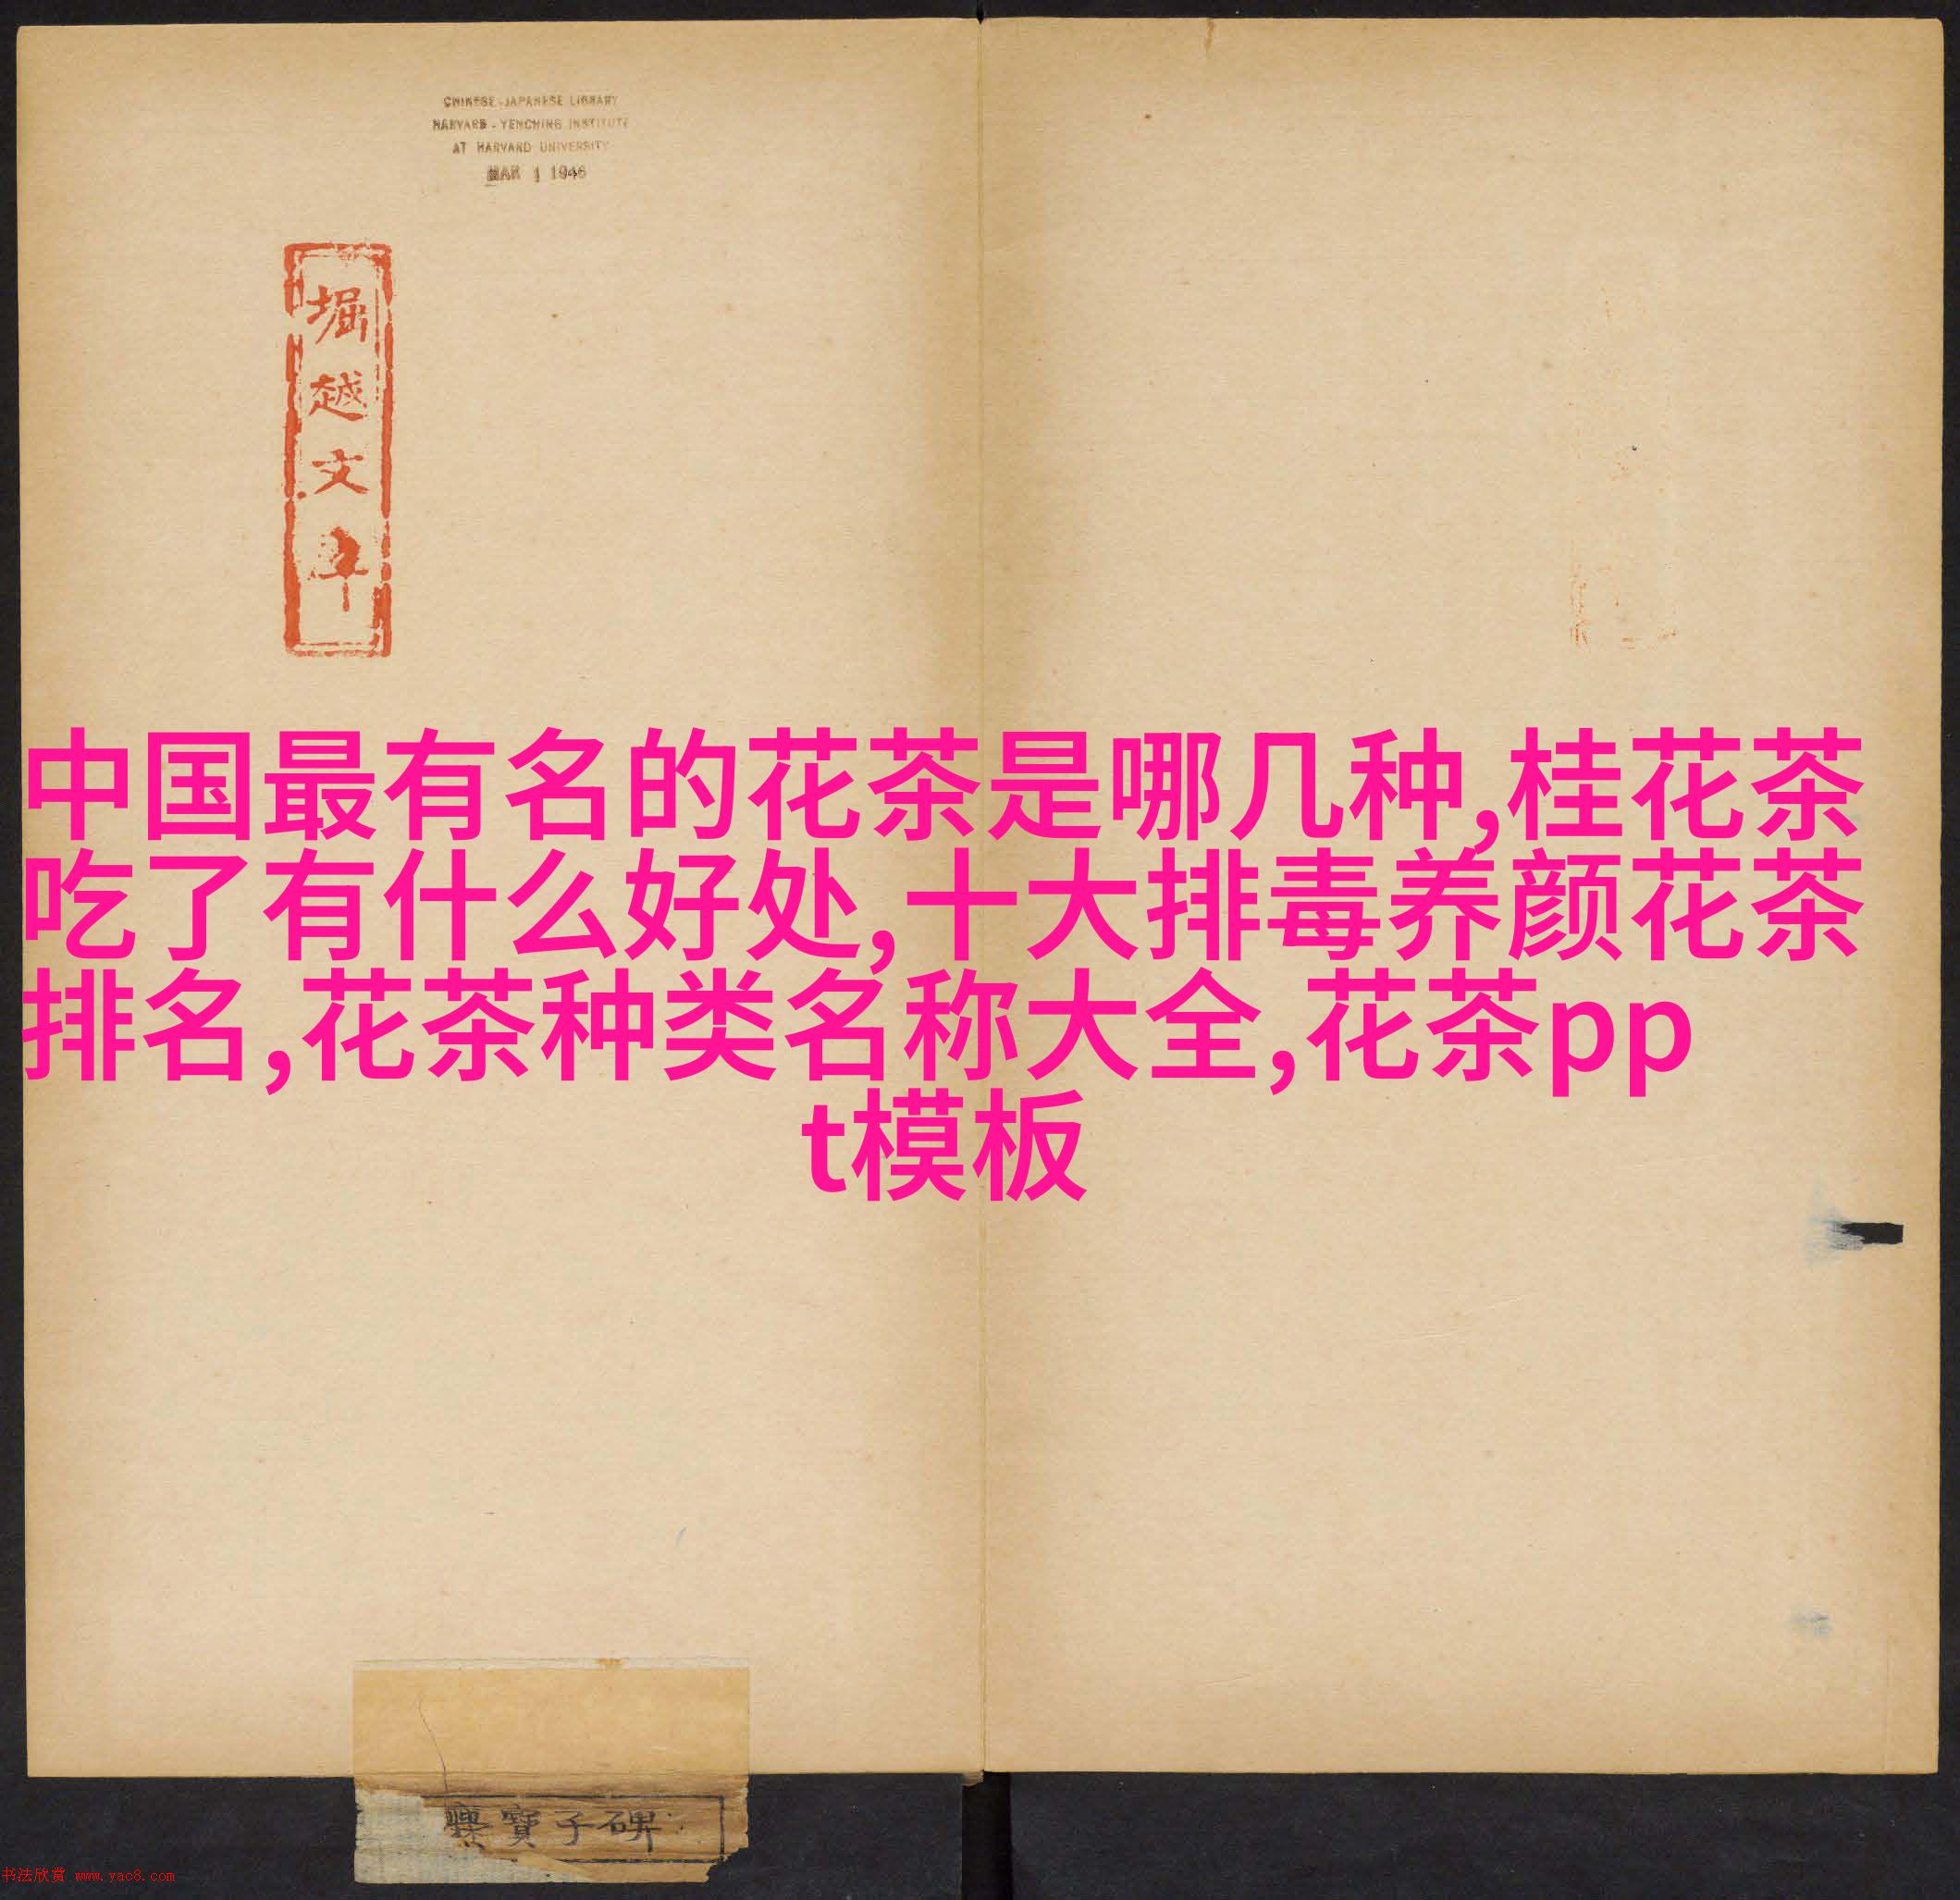 CHINESE-JAPANESE LIBRARY
HARVARD-YENCHING INSTITUTE
AT HARVARD UNIVERSITY
MAR 1 1946
堀
越
文
中国最有名的花茶是哪几种,桂花茶
吃了有什么好处,十大排毒养颜花茶
排名,花茶种类名称大全,花茶pp
t模板
爨寶子碑
书法欣赏 www.yac8.com